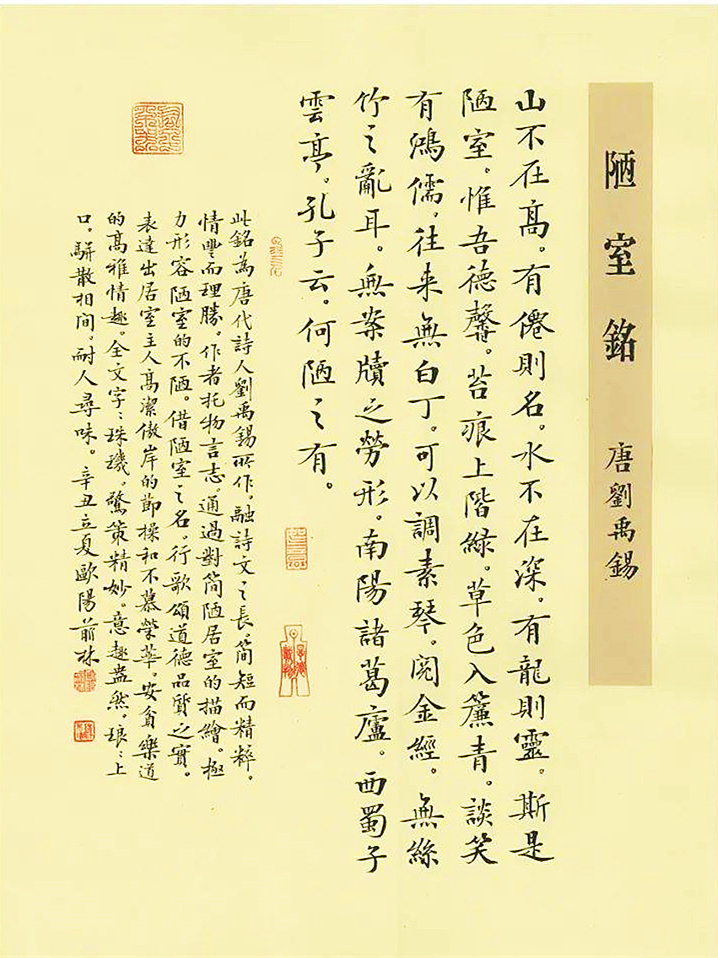 陋室銘 唐劉禹錫
山不在高。有僊則名。水不在深。有龍則靈。斯是
陋室。惟吾德馨。苔痕上階綠。草色入簾青。談笑
有鴻儒。往來無白丁。可以調素琴。閱金經。無絲
竹之亂耳。無案牘之勞形。南陽諸葛廬。西蜀子
雲亭。孔子云。何陋之有。
此銘為唐代詩人劉禹錫所作。融詩文之長。簡短而精粹。
情豐而理勝。作者托物言志。通過對簡陋居室的描繪。極
力形容陋室的不陋。借陋室之名。行歌頌道德品質之實。
表達出居室主人高潔傲岸的節操和不慕榮華。安貧樂道
的高雅情趣。全文字〻珠璣。驚策精妙。意趣盎然。琅〻上
口。駢散相間。耐人尋味。辛丑立夏歐陽前林